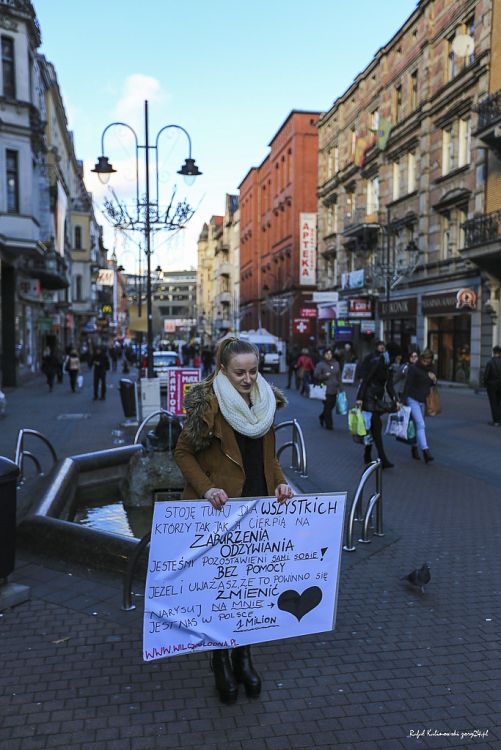 APTEKA
STOJĘ TUTAJ DLA WSZYSTKICH
KTÓRZY TAK JAK JA CIERPIĄ NA
ZABURZENIA
ODŻYWIANIA
JESTEŚMY POZOSTAWIENI SAMI SOBIE!
BEZ POMOCY
JEŻELI UWAŻASZ ŻE TO POWINNO SIĘ
ZMIENIĆ
NARYSUJ NA MNIE →
JEST NAS W POLSCE
1 MILION
WWW.WILCZOGLODNA.PL
Rafał Kulinowski zory24.pl